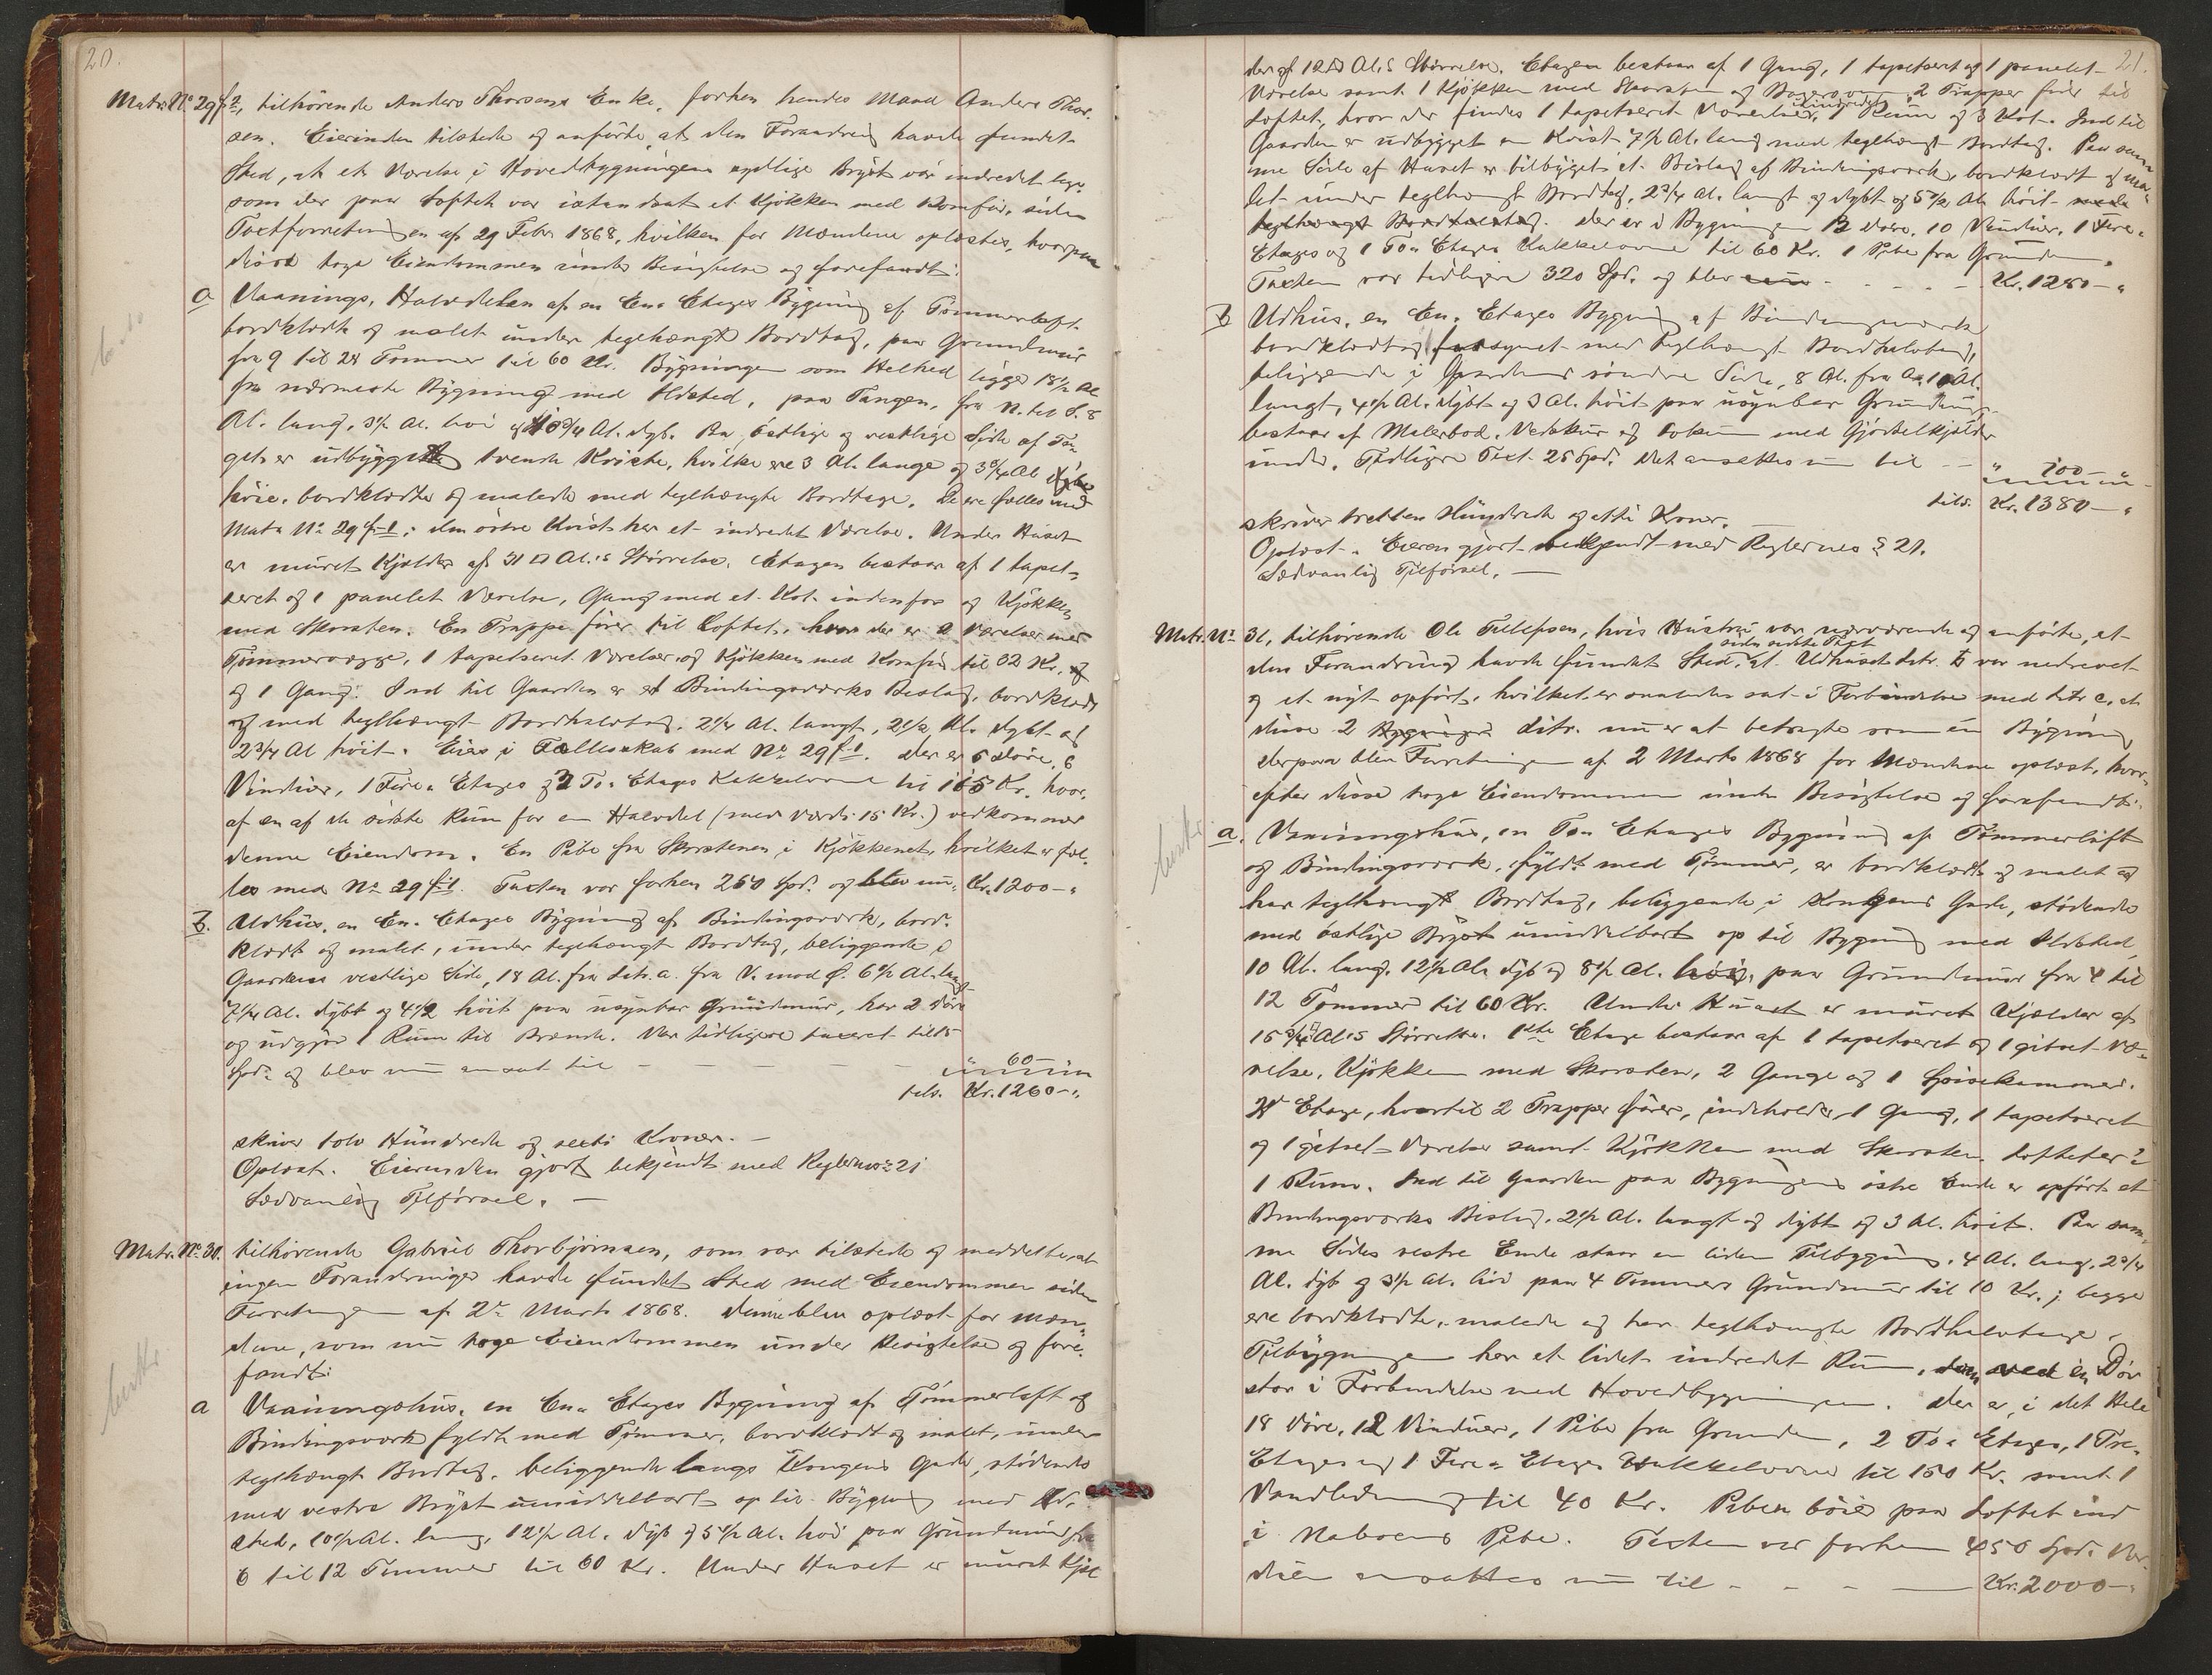 20.
Matr. No 29 f 2, tilhørende Anders Thorsens Enke, forhen hendes Mand Anders Thor-
sen. Eierinden tilstede og anførte, at den Forandring havde fundet
Sted, at et Værelse i Hovedbygningens sydlige Bryst var indredet lige-
som der paa Loftet var istandsat et Kjøkken med Komfur, siden
Taxtforretningen af 29 Febr 1868, hvilken for Mændene oplæstes, hvorpaa
disse toge Eiendommen under Besigtelse og forefandt:
a Vaanings, Halvdelen af en En-Etages Bygning af Tømmerloft
bordklædt og malet under teglhængt Bordtag, paa Grundmur
fra 9 til 24 Tommer til 60 Kr. Bygningen som Helhed ligger 18 1/2 Al
fra nærmeste Bygning med Ildsted, paa Tangen, fra N. til S. 8
Al. lang, 3 1/2 Al. høi og 10 3/4 Al. dyb. Paa østlige og vestlige Side af Ta-
get er udbygget tvende Kviste, hvilke ere 3 Al. lange og 3 3/4 Al dybe
høie, bordklædte og malede med teglhængte Bordtage. De ere fælles med
Matr No 29 f 1; den østre Kvist har et indredet Værelse. Under Huset
er muret Kjælder af 31 □ Al.s Størrelse. Etagen bestaar af 1 tapet-
seret og 1 panelet Værelse, Gang med et Kot indenfor og Kjøkken
med Skorsten. En Trappe fører til Loftet, hvor der er 2 Værelser med
Tømmervægge, 1 tapetseret Værelse og Kjøkken med Komfur til 32 Kr. og
og 1 Gang. Ind til Gaarden er et Bindingsværks Beslag, bordklædt
og med teglhængt Bordhalvtag, 2 1/4 Al. langt, 2 1/2 Al. dybt og
2 3/4 Al høit. Eies i Fællesskab med No 29 f 1. Der er 6 Døre, 6
Vinduer, 1 Fire-Etages og 2 To-Etages Kakkelovne til 165 Kr. hvor-
af en af de sidste kun for en Halvdel (med Værdi 15 Kr.) vedkommer
denne Eiendom. En Pibe fra Skorstenen i Kjøkkenet, hvilket er fæl-
les med No 29 f 1. Taxten var forhen 250 Spd. og blev nu: Kr. 1200 - "
b. Udhus, en En-Etages Bygning af Bindingsværk, bord-
klædt og malet, under teglhængt Bordtag, beliggende i
Gaardens vestlige Side, 18 Al. fra Litr. a. fra V. mod Ø. 6 1/2 Al. langt
7 1/4 Al. dybt og 4 1/2 høit paa usynbar Grundmur, har 2 Døre
og udgjør 1 Rum til Brænde. Var tidligere taxeret til 15
Spd. og blev nu ansat til - - - - - " 60 -
tils. Kr. 1260 - "
skriver tolv Hundrede og sexti Kroner. -
Oplæst. Eierinden gjort bekjendt med Reglernes § 21
Sædvanlig Tilførsel. -
Matr. No 30. tilhørende Gabriel Thorbjørnsen, som var tilstede og meddelte, at
ingen Forandringer havde fundet Sted med Eiendommen siden
Forretningen af 2den Marts 1868. Denne blev oplæst for Mæn-
dene, som nu toge Eiendommen under Besigtelse og fore-
fandt:
a Vaaningshus, en En-Etages Bygning af Tømmerloft og
Bindingsværk fyldt med Tømmer, bordklædt og malet, under
teglhængt Bordtag, beliggende langs Kongens Gade, stødende
med vestre Bryst umiddelbart op til Bygning med Ild-
sted, 10 1/2 Al. lang, 12 1/2 Al. dyb og 5 1/2 Al. høi paa Grundmur fra
6 til 12 Tommer til 60 Kr. Under Huset er muret Kjæl
21.
der af 12 □ Al.s Størrelse. Etagen bestaar af 1 Gang, 1 tapetseret og 1 panelet
Værelse samt 1 Kjøkken med Skorsten og Bagerovn, 2 Trapper fører til
Loftet, hvor der findes 1 tapetseret Værelse, 1 uindredet Rum og 3 Kot. Ind til
Gaarden er udbygget en Kvist 7 1/2 Al. lang med teglhængt Bordtag. Paa sam-
me Side af Huset er tilbygget et Bislag af Bindingsværk, bordklædt og ma-
let under teglhængt Bordtag, 2 3/4 Al. langt og dybt og 5 1/2 Al. høit
teglhængt Bordhalvtag. Der er i Bygningen 12 Døre, 10 Vinduer, 1 Fire-
Etages og 1 To-Etages Kakkelovne til 60 Kr. 1 Pibe fra Grunden.
Taxten var tidligere 320 Spd. og blev nu - - - - Kr. 1280 - "
b Udhus, en En-Etages Bygning af Bindingsværk
bordklædt og forsynet med teglhængt Bordhalvtag,
beliggende i Gaardens søndre Side, 8 Al. fra a, 10 Al.
langt, 4 1/2 Al. dybt og 3 Al. høit paa usynbar Grundmur
bestaar af Malerbod, Vedskur og Lokum med Gjødselkjælder
under. Tidligere Taxt 25 Spd. Det ansattes nu til - " 100 - "
tils. Kr. 1380 - "
skriver tretten Hundrede og otti Kroner. -
Oplæst. Eieren gjort bekjendt med Reglernes § 21.
Sædvanlig Tilførsel. -
Matr. No 31, tilhørende Ole Tellefsen, hvis Hustru var nærværende og anførte, at
siden sidste Taxt
den Forandring havde fundet Sted, at Udhuset Litr. b var nedrevet
og et nyt opført, hvilket er saaledes sat i Forbindelse med Litr c, at
disse 2 Bygninger Litr. nu er at betragte som en Bygning,
derpaa blev Forretningen af 2 Marts 1868 for Mændene oplæst, hvor-
efter disse toge Eiendommen under Besigtelse og forefandt:
a. Vaaningshus, en To-Etages Bygning af Tømmerloft
og Bindingsværk, fyldt med Tømmer, er bordklædt og malet og
har teglhængt Bordtag, beliggende i Kongens Gade, stødende
med østlige Bryst umiddelbart op til Bygning med Ildsted,
10 Al. lang, 12 1/2 Al. dyb og 8 1/2 Al. høi, paa Grundmur fra 4 til
12 Tommer til 60 Kr. Under Huset er muret Kjælder af
15 3/4 □ Al.s Størrelse. 1ste Etage bestaar af 1 tapetseret og 1 gibset Væ-
relse, Kjøkken med Skorsten, 2 Gange og 1 Spisekammer.
2d Etage, hvortil 2 Trapper fører, indeholder 1 Gang, 1 tapetseret
og 1 gibset Værelse samt Kjøkken med Skorsten. Loftet er i
1 Rum. Ind til Gaarden paa Bygningens østre Ende er opført et
Bindingsværks Bislag, 2 1/2 Al. langt og dybt og 3 Al. høit. Paa sam-
me Sides vestre Ende staar en liden Tilbygning, 4 Al. lang, 2 3/4
Al. dyb og 3 1/2 Al. høi paa 4 Tommers Grundmur til 10 Kr.; begge
ere bordklædte, malede og har teglhængte Bordhalvtage.
Tilbygningen har et lidet indredet Rum, som ved en Dør
staar i Forbindelse med Hovedbygningen. Der er i det Hele
18 Døre, 12 Vinduer, 1 Pibe fra Grunden, 2 To-Etages, 1 Tre-
Etages og 1 Fire-Etages Kakkelovne til 150 Kr. samt 1
Vandledning til 40 Kr. Piben bøier paa Loftet ind
i Naboens Pibe. Taxten var forhen 450 Spd. Vær-
dien ansattes nu til - - - - Kr. 2000 - "